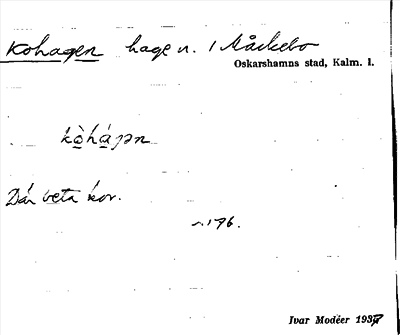 Kohagen hage n. 1 Måckebo
Oskarshamns stad, Kalm. l.
kò̱há̱γən
Där beta kor.
n. 176.
Ivar Modéer 1937